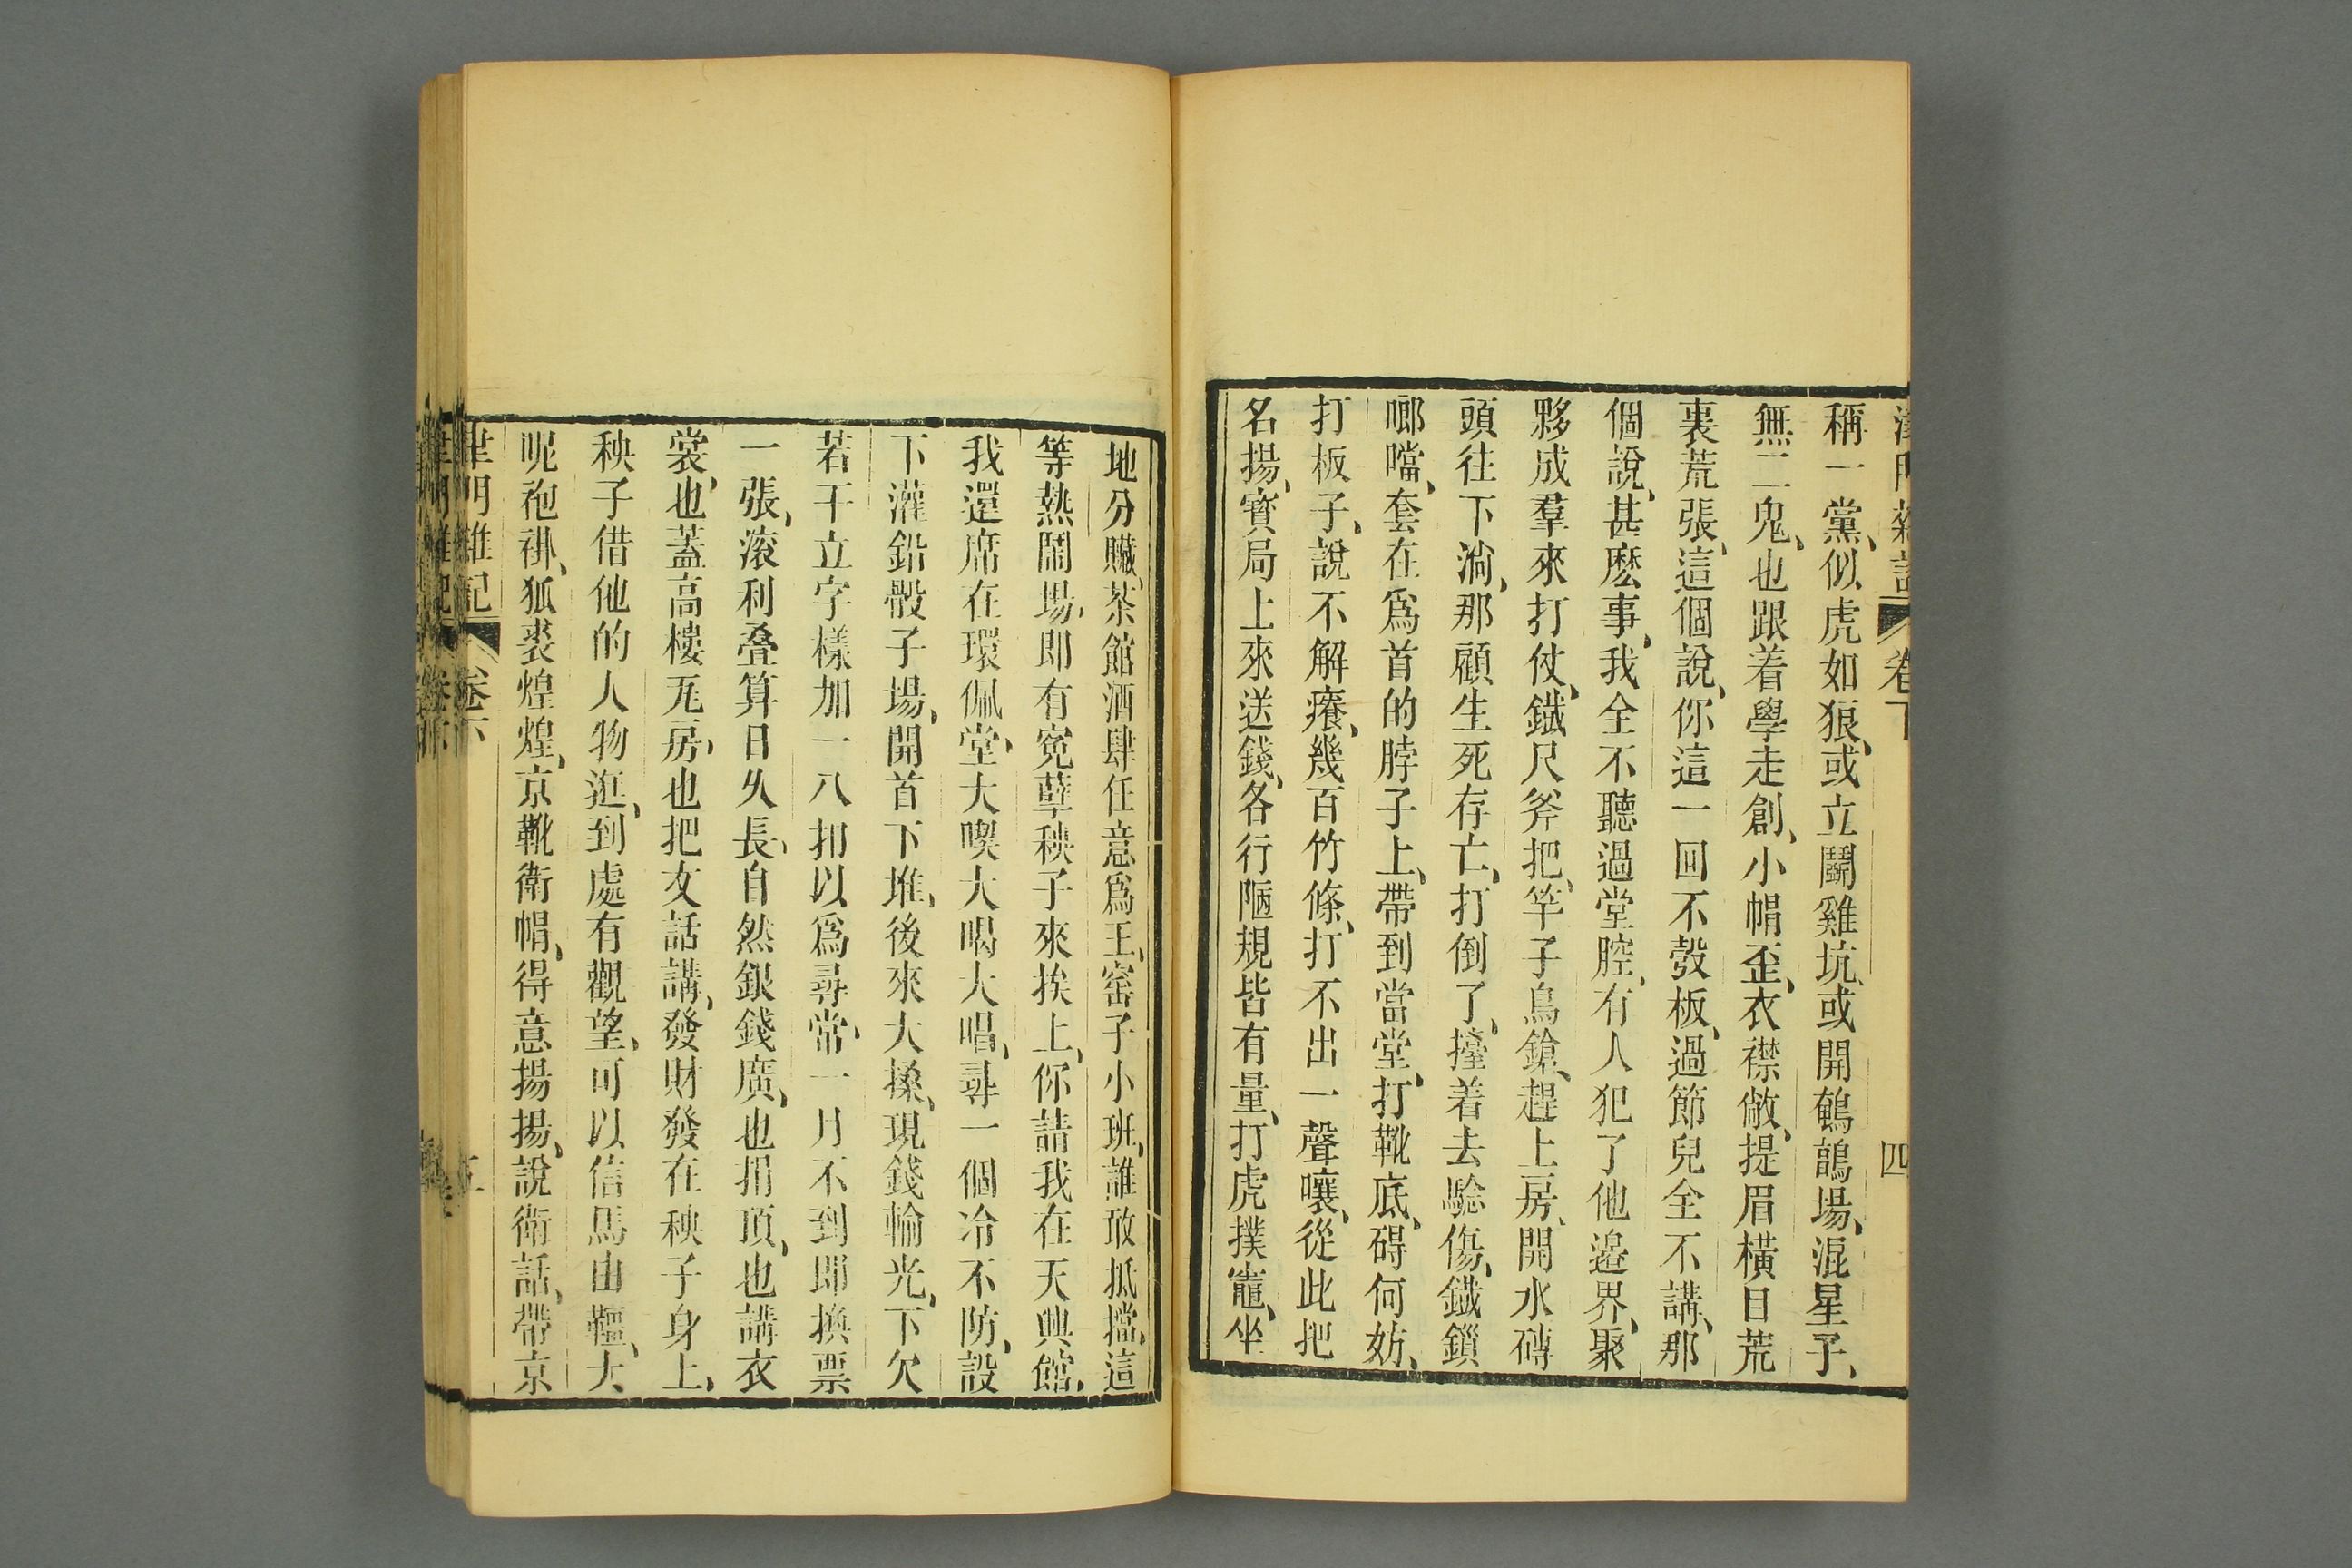 津門雜記 卷下 四
稱一黨、似虎如狼、或立鬭雞坑、或開鵪鶉場、混星子、
無二鬼、也跟着學走創、小帽歪、衣襟敞、提眉橫目荒
裏荒張、這個說、你這一回不彀板、過節兒全不講、那
個說、甚麽事、我全不聽過堂腔、有人犯了他邉界、聚
夥成羣來打仗、鐡尺斧把、竿子鳥鎗、趕上房、開水磚
頭往下淌、那顧生死存亡、打倒了、擡着去騐傷、鐡鎖
啷噹、套在爲首的脖子上、帶到當堂、打靴底、碍何妨、
打板子、說不解癢、幾百竹條、打不出一聲嚷、從此把
名揚、寳局上來送錢、各行陋規皆有量、打虎撲竈、坐
地分贓、茶館酒肆任意爲王、窰子小班、誰敢抵擋、這
等熱鬧場、即有寃孽秧子來挨上、你請我在天興館、
我還席在環佩堂、大喫大喝大唱、尋一個冷不防、設
下灌鉛骰子場、開首下堆、後來大搡、現錢輸光、下欠
若干立字樣加一八扣以爲尋常、一月不到即換票
一張、滚利叠算日久長、自然銀錢廣、也捐頂、也講衣
裳、也蓋高樓瓦房、也把文話講、發財發在秧子身上、
秧子借他的人物逛、到處有觀望、可以信馬由韁、大
呢袍褂、狐裘煌煌、京靴衛帽、得意揚揚、說衛話、帶京
津門雜記 卷下 五